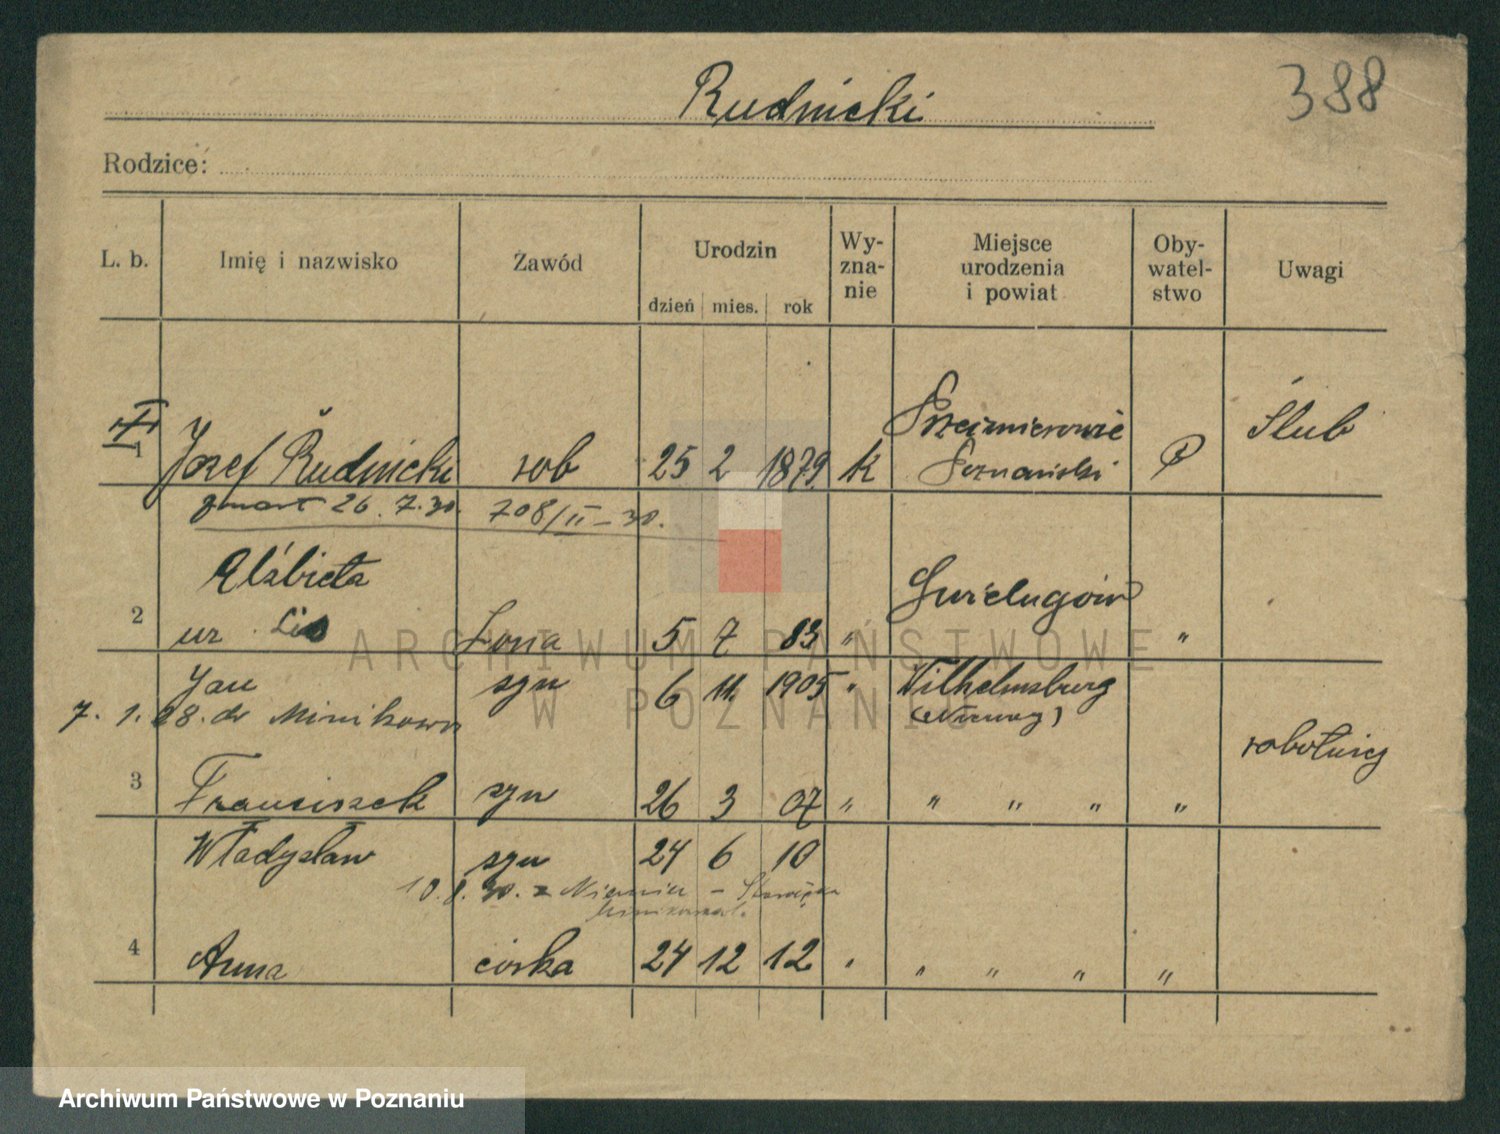 Rudnicki
388
Rodzice:
L. b. Imię i nazwisko Zawód Urodzin dzień mies. rok Wy-zna-nie Miejsce urodzenia i powiat Oby-watel-stwo Uwagi
1 Józef Rudnicki rob 25 2 1879 k Przeźmierowie Poznański P Ślub
zmarł 26.7.30. 708/II-30.
Elżbieta
2 ur Lis żona 5 7 83 " Świelugów "
Jan syn 6 11. 1905 " Wilhelmsburg
7. 1. 28. do Minikowa (Niemcy)
robotnicy
3 Franciszek syn 26 3 07 " " " " "
Władysław syn 24 6 10
10.8.30. z Niemiec -
4 Anna córka 24 12 12 " " " " "
ARCHIWUM PAŃSTWOWE
W POZNANIU
Archiwum Państwowe w Poznaniu